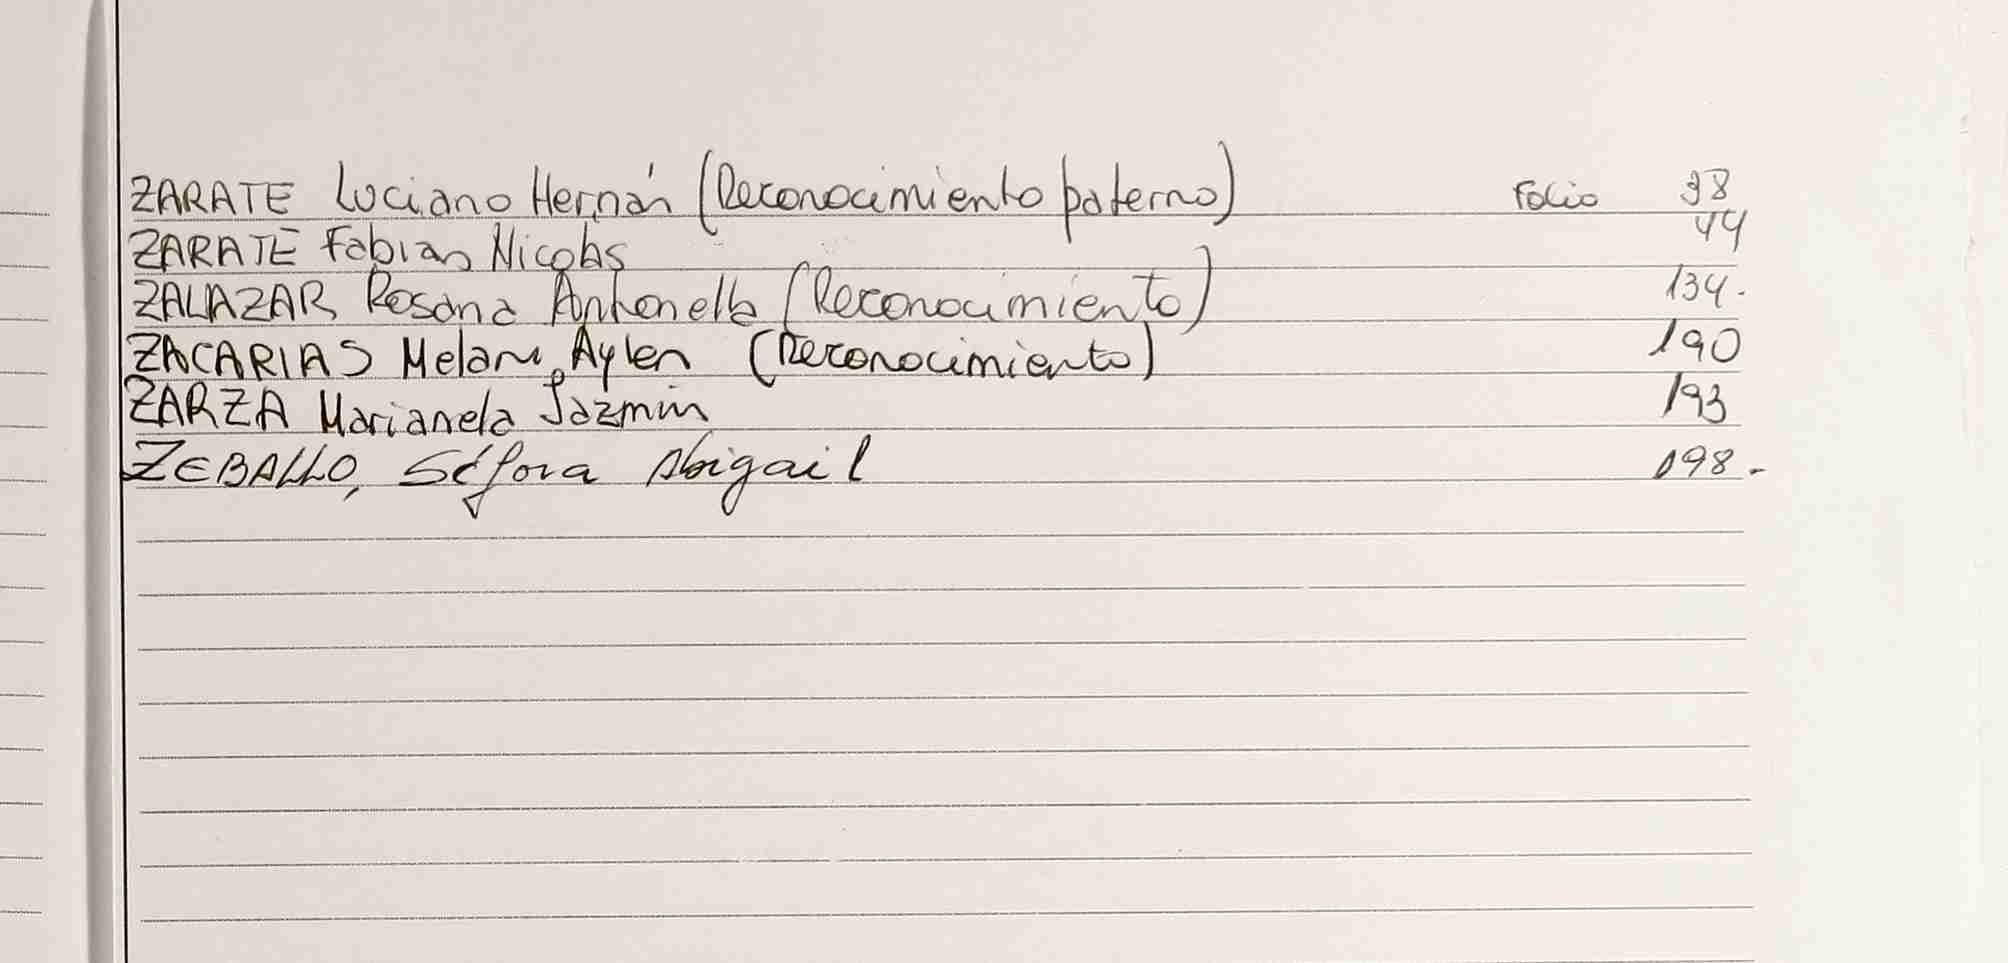 ZARATE Luciano Hernán (Reconocimiento paterno) Folio 38
ZARATE Fabian Nicolas 44
ZALAZAR Rosana Antonella (Reconocimiento) 134.
ZACARIAS Melani Aylen (Reconocimiento) 190
ZARZA Marianela Jazmin 193
ZEBALLO, Séfora Abigail 198.-